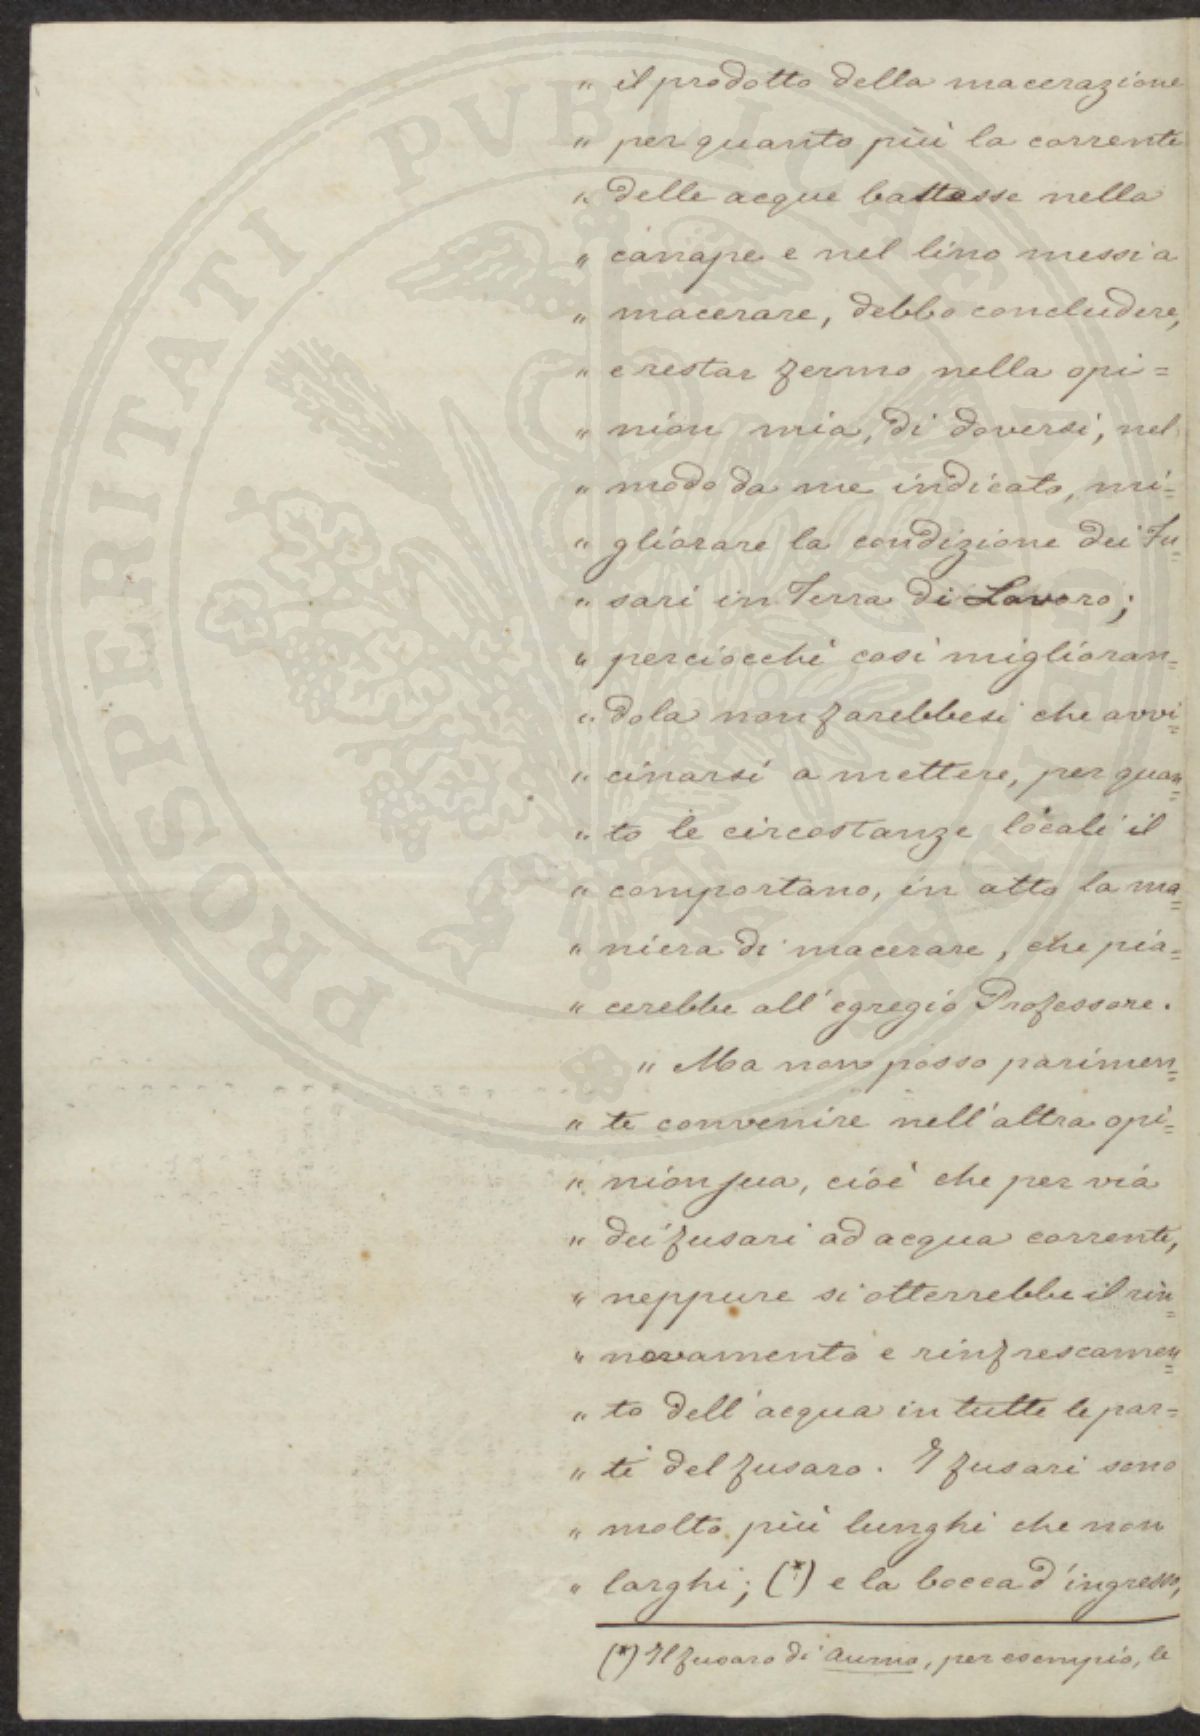 " il prodotto della macerazione
" per quanto più la corrente
" delle acque battesse nella
" canape e nel lino messi a
" macerare, debbo concludere,
" e restar fermo nella opi=
" nion mia, di doversi, nel
" modo da me indicato, mi=
" gliorare la condizione dei Fu=
" sari in Terra di Lavoro;
" perciocchè così miglioran=
" dola non farebbesi che avvi=
" cinarsi a mettere, per quan=
" to le circostanze locali il
" comportano, in atto la ma=
" niera di macerare, che pia=
" cerebbe all'egregio Professore.
" Ma non posso parimen=
" te convenire nell'altra opi=
" nion sua, cioè che per via
" dei fusari ad acqua corrente,
" neppure si otterrebbe il rin=
" novamento e rinfrescamen=
" to dell'acqua in tutte le par=
" ti del fusaro. I fusari sono
" molto più lunghi che non
" larghi; (*) e la bocca d'ingresso,
(*) Il fusaro di Aurno, per esempio, le
PROSPERITATI PVBLICAE